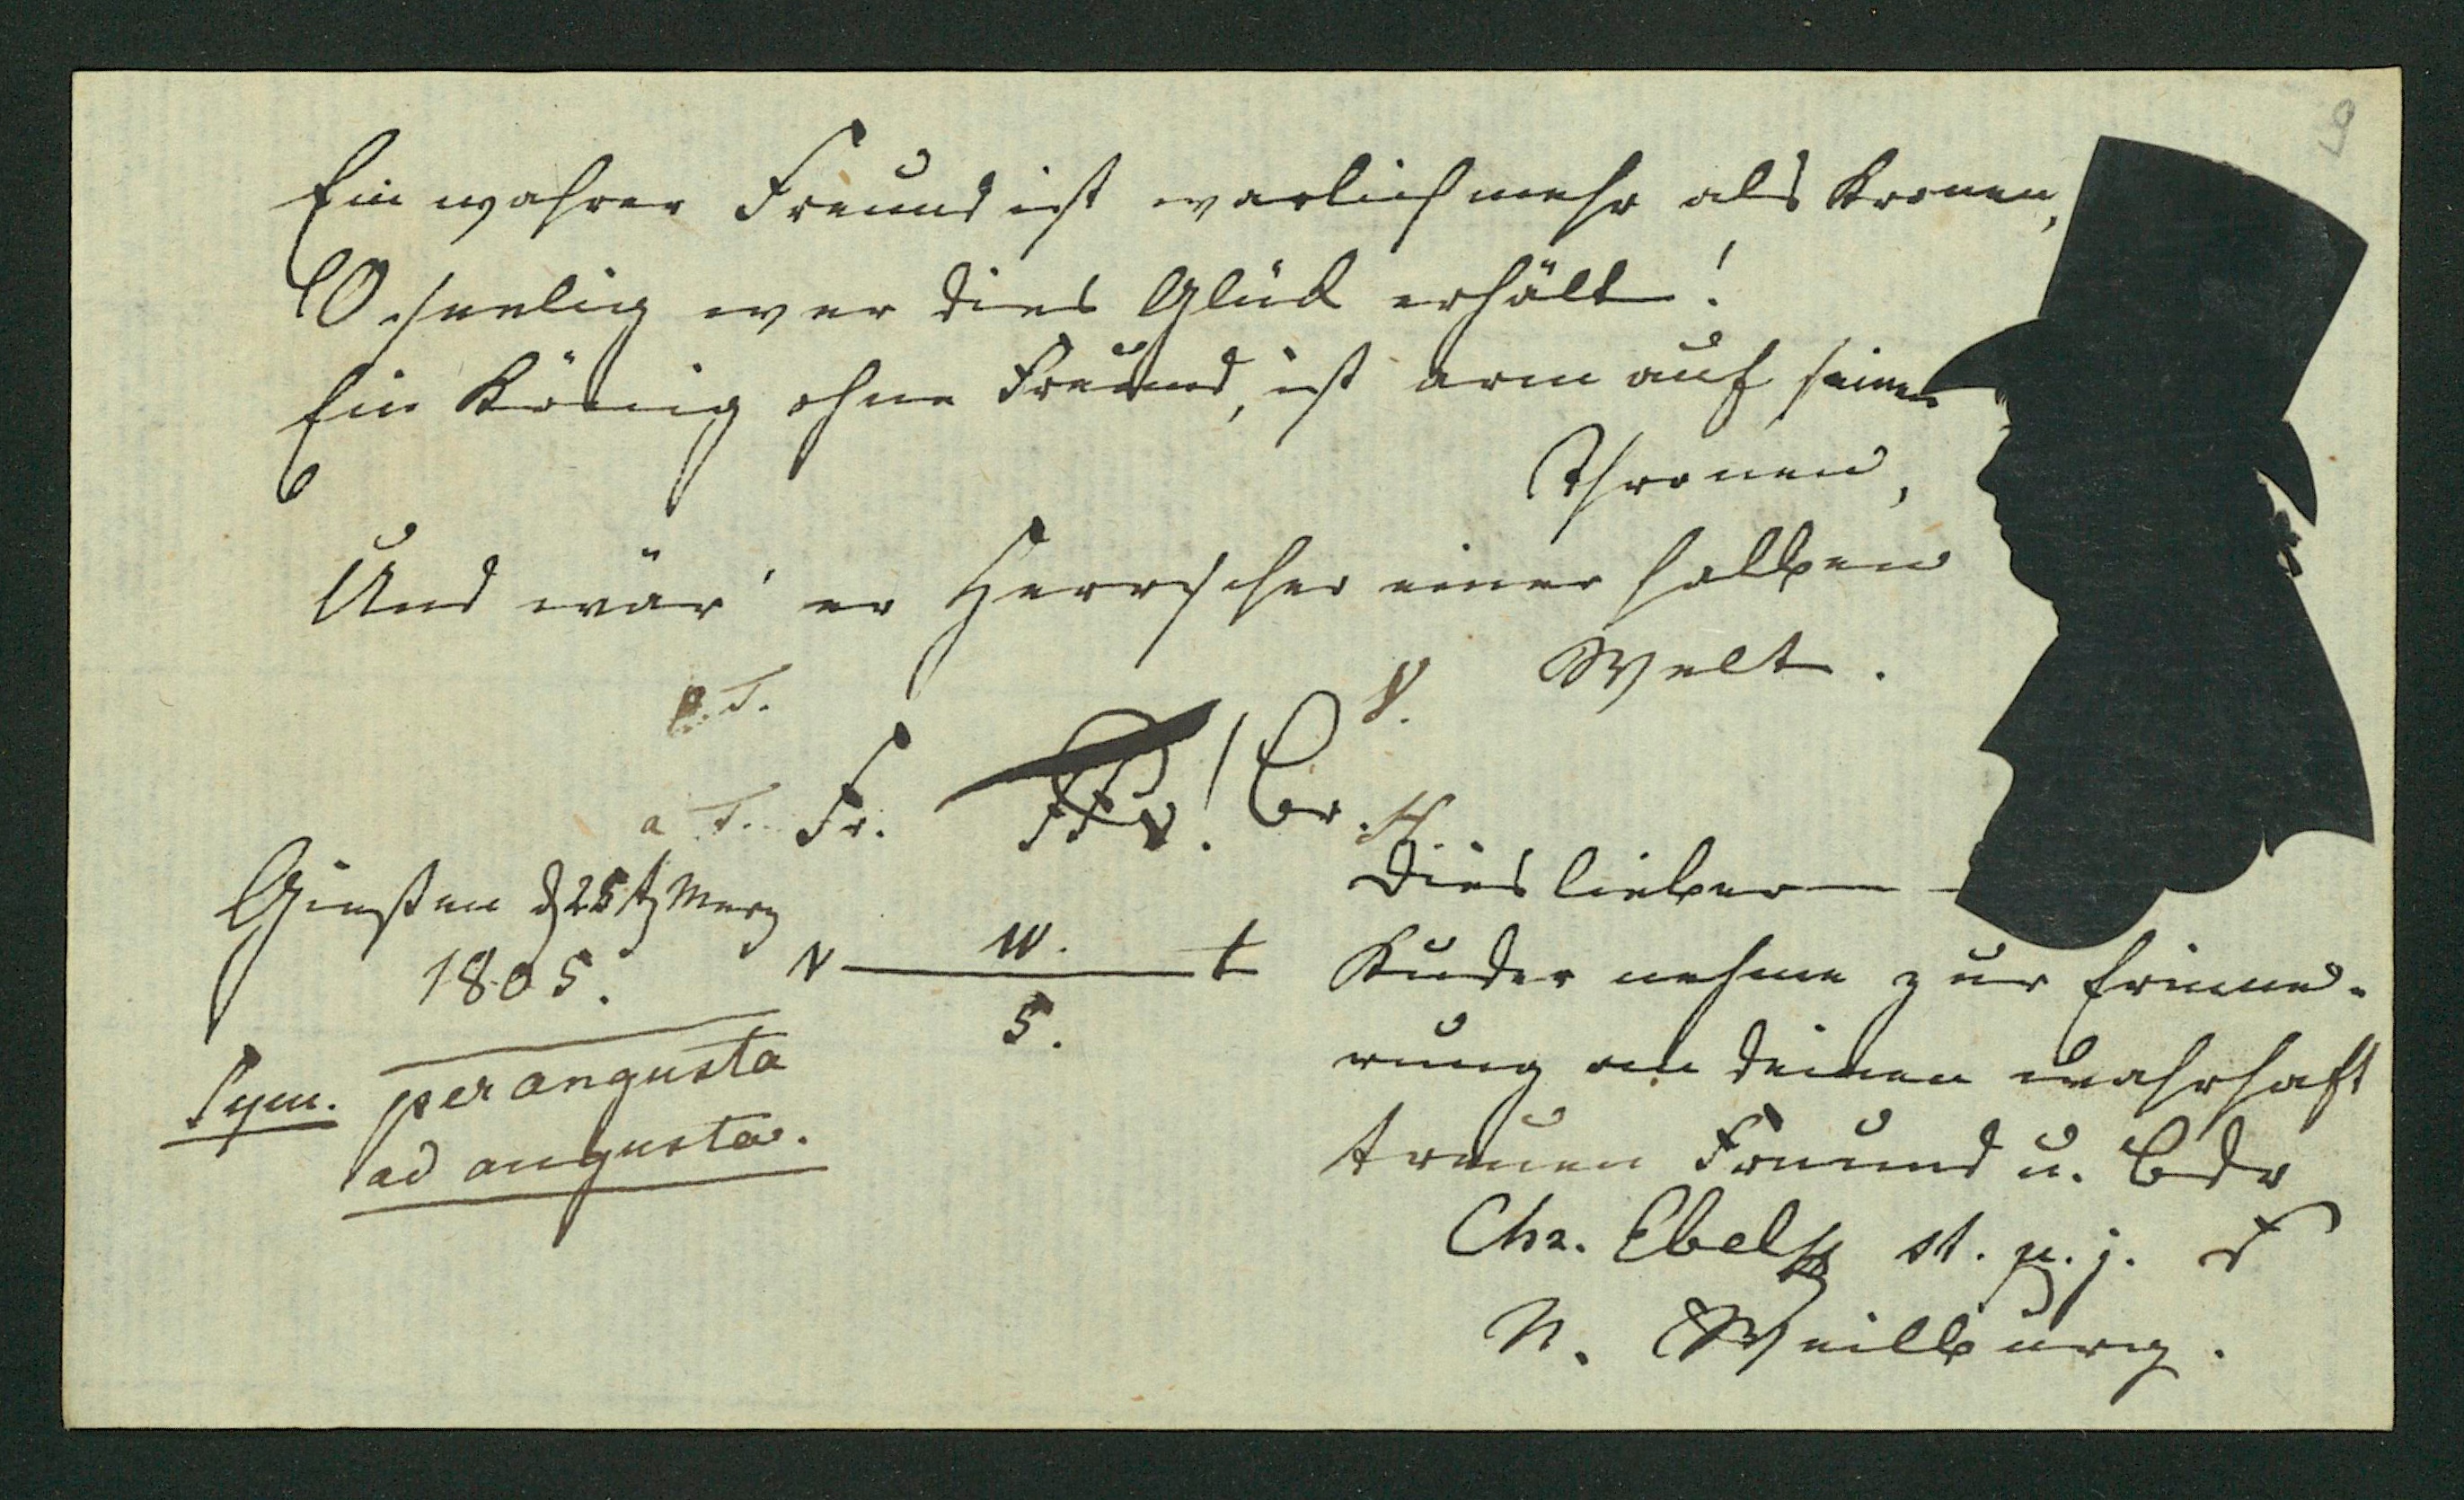 9
Ein wahrer Freund ist warlich mehr als Kronen,
O seelig wer dies Glük erhält!
Ein König ohne Freund, ist arm auf seinen
Thronen,
Und wär' er Herrscher einer halben
Welt.
T. V.
a T. Fr. ! Br. H.
Giesten d 25t Merz
1805.
N W. t
5.
Sym. per angusta
ad augusta.
Dies lieber
Kuder nehme zur Erinne-
rung an deinen wahrhaft
treuen Freund u. Bdr
Chr. Ebel st. p. j.
N. Weilburg.